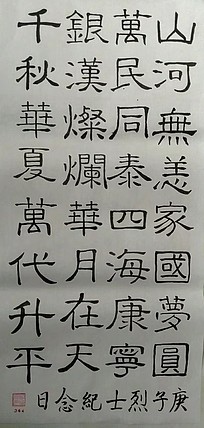 山河無恙家國夢圓
萬民同泰四海康寧
銀漢燦爛華月在天
千秋華夏萬代升平
庚子烈士紀念日